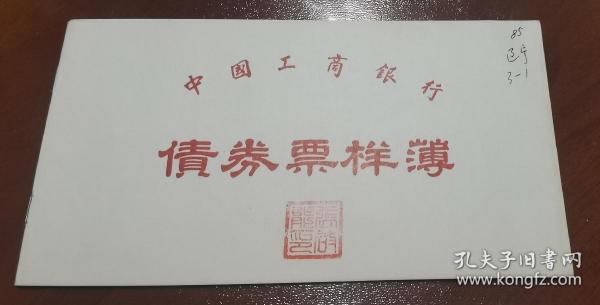 中國工商銀行
債券票样薄
85
3-1
孔夫子旧书网
www.kongfz.com